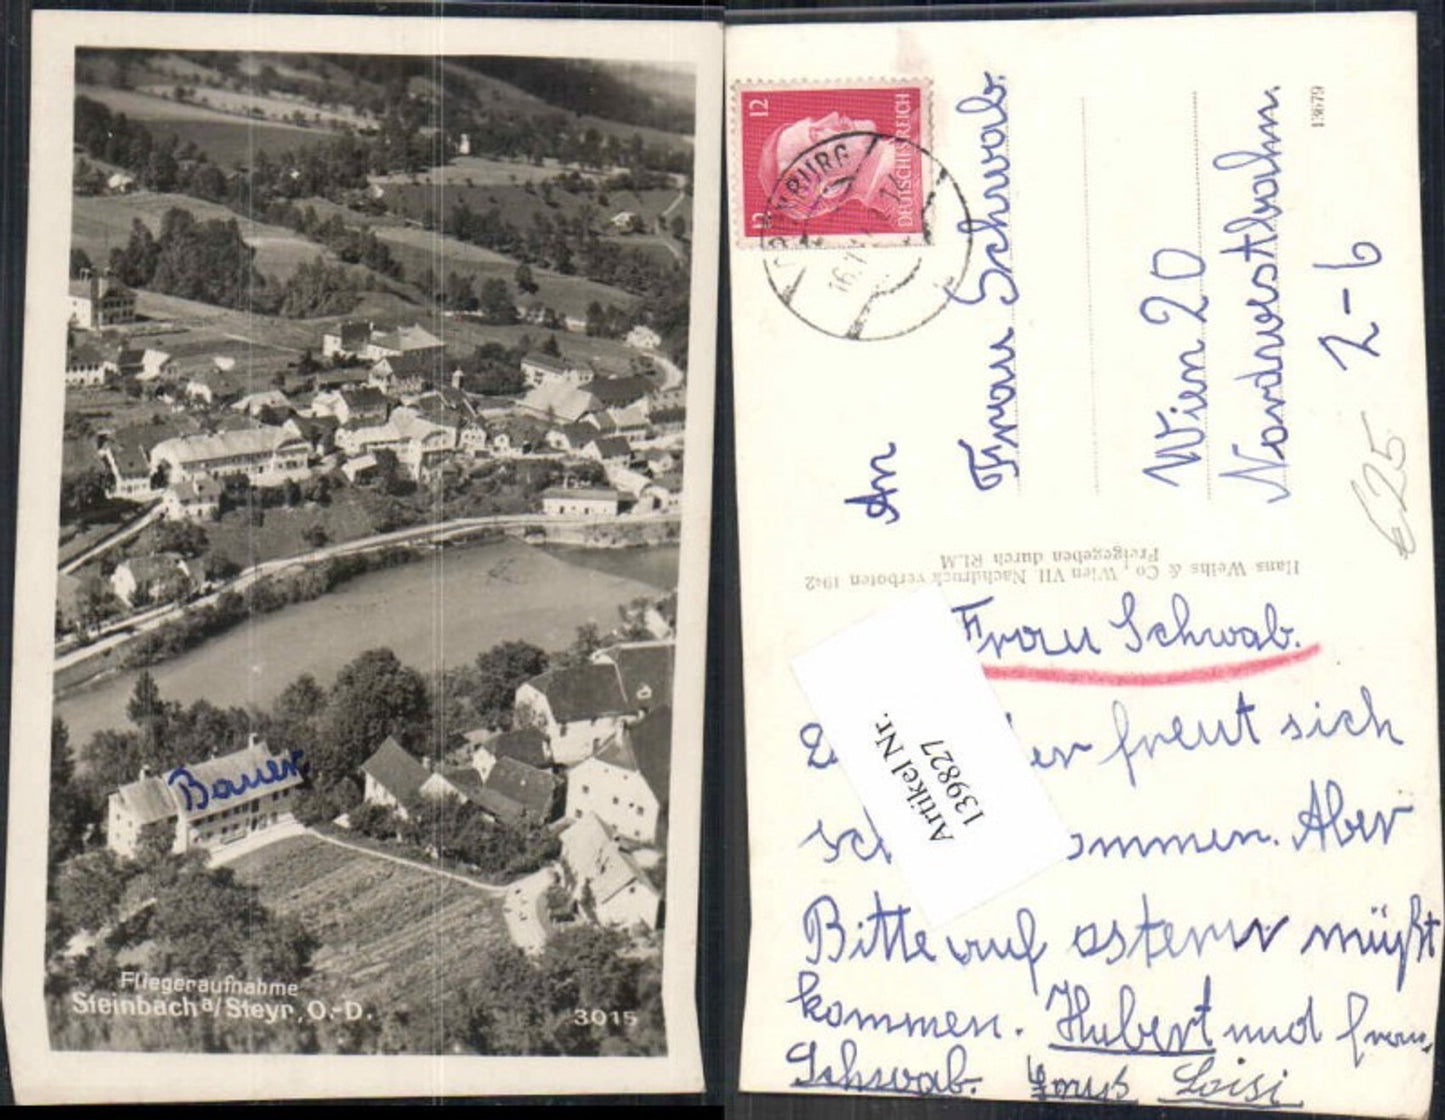 Bauer
Fliegeraufnahme
Steinbach a/Steyr, O.-D.
3015
12
12
DEUTSCHES REICH
An
Frau Schwab.
Wien 20
Nordwestbahn.
2-6
13679
€25
Hans Weihs & Co., Wien VII Nachdruck verboten 1942
Freigegeben durch RLM
Artikel Nr.
139827
Frau Schwab.
er freut sich
ommen. Aber
Bitte auf ostern müßt
kommen. Hubert und frau
Schwab. Loisi